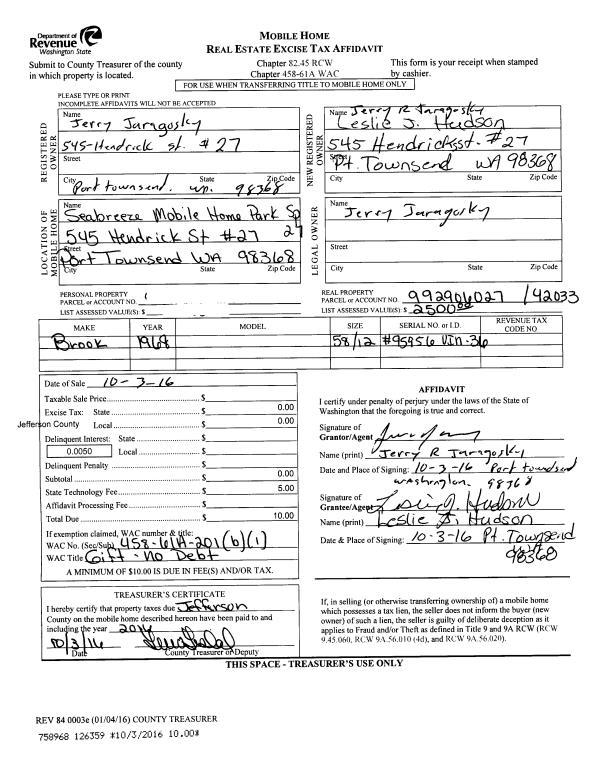 Department of
Revenue
Washington State
MOBILE HOME
REAL ESTATE EXCISE TAX AFFIDAVIT
Submit to County Treasurer of the county
in which property is located.
Chapter 82.45 RCW
Chapter 458-61A WAC
This form is your receipt when stamped
by cashier.
FOR USE WHEN TRANSFERRING TITLE TO MOBILE HOME ONLY
PLEASE TYPE OR PRINT
INCOMPLETE AFFIDAVITS WILL NOT BE ACCEPTED
REGISTERED OWNER
Name
Jerry Jaragosky
545-Hendrick st. # 27
Street
City Port townsend. State wa. Zip Code 98368
NEW REGISTERED OWNER
Name Jerry R Jaragosky
Leslie J. Hudson
545 Hendricks st. #27
Street
Pt. Townsend WA 98368
City State Zip Code
LOCATION OF MOBILE HOME
Name
Seabreeze Mobile Home Park Sp 27
545 Hendrick St #27
Street
Port Townsend WA 98368
City State Zip Code
LEGAL OWNER
Name
Jerry Jaragosky
Street
City State Zip Code
PERSONAL PROPERTY
PARCEL or ACCOUNT NO.
LIST ASSESSED VALUE(S): $
REAL PROPERTY
PARCEL or ACCOUNT NO. 992906027 / 42033
LIST ASSESSED VALUE(S): $ 2500.00
MAKE YEAR MODEL SIZE SERIAL NO. or I.D. REVENUE TAX CODE NO
Brook 1968 58/12 #95956 VIN-36
Date of Sale 10-3-16
Taxable Sale Price $
Excise Tax: State $ 0.00
Jefferson County Local $ 0.00
Delinquent Interest: State $
0.0050 Local $
Delinquent Penalty $
Subtotal $ 0.00
State Technology Fee $ 5.00
Affidavit Processing Fee $
Total Due $ 10.00
If exemption claimed, WAC number & title:
WAC No. (Sec/Sub) 458-61A-201(b)(1)
WAC Title Gift - No Debt
A MINIMUM OF $10.00 IS DUE IN FEE(S) AND/OR TAX.
AFFIDAVIT
I certify under penalty of perjury under the laws of the State of
Washington that the foregoing is true and correct.
Signature of
Grantor/Agent
Name (print) Jerry R Jaragosky
Date and Place of Signing: 10-3-16 Port townsend
washington. 98368
Signature of
Grantee/Agent Leslie J. Hudson
Name (print) Leslie J. Hudson
Date & Place of Signing: 10-3-16 Pt. Townsend
98368
TREASURER'S CERTIFICATE
I hereby certify that property taxes due Jefferson
County on the mobile home described hereon have been paid to and
including the year 2016
10/3/16
Date County Treasurer or Deputy
If, in selling (or otherwise transferring ownership of) a mobile home
which possesses a tax lien, the seller does not inform the buyer (new
owner) of such a lien, the seller is guilty of deliberate deception as it
applies to Fraud and/or Theft as defined in Title 9 and 9A RCW (RCW
9.45.060, RCW 9A.56.010 (4d), and RCW 9A.56.020).
THIS SPACE - TREASURER'S USE ONLY
REV 84 0003e (01/04/16) COUNTY TREASURER
758968 126359 *10/3/2016 10.00*